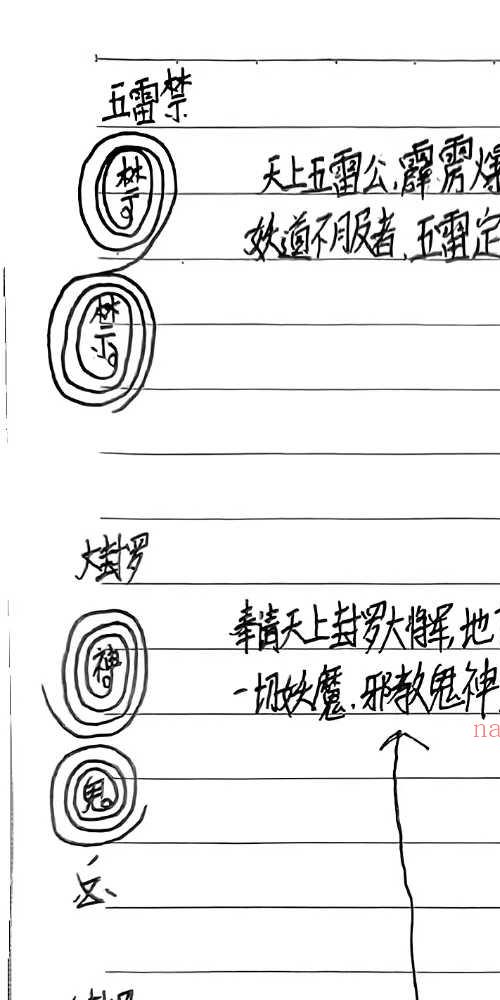 五雷禁
禁
天上五雷公,霹雳爆
妖道不服者,五雷定
禁
大封罗
奉请天上封罗大将军,地下
一切妖魔,邪教鬼神
神
na
鬼